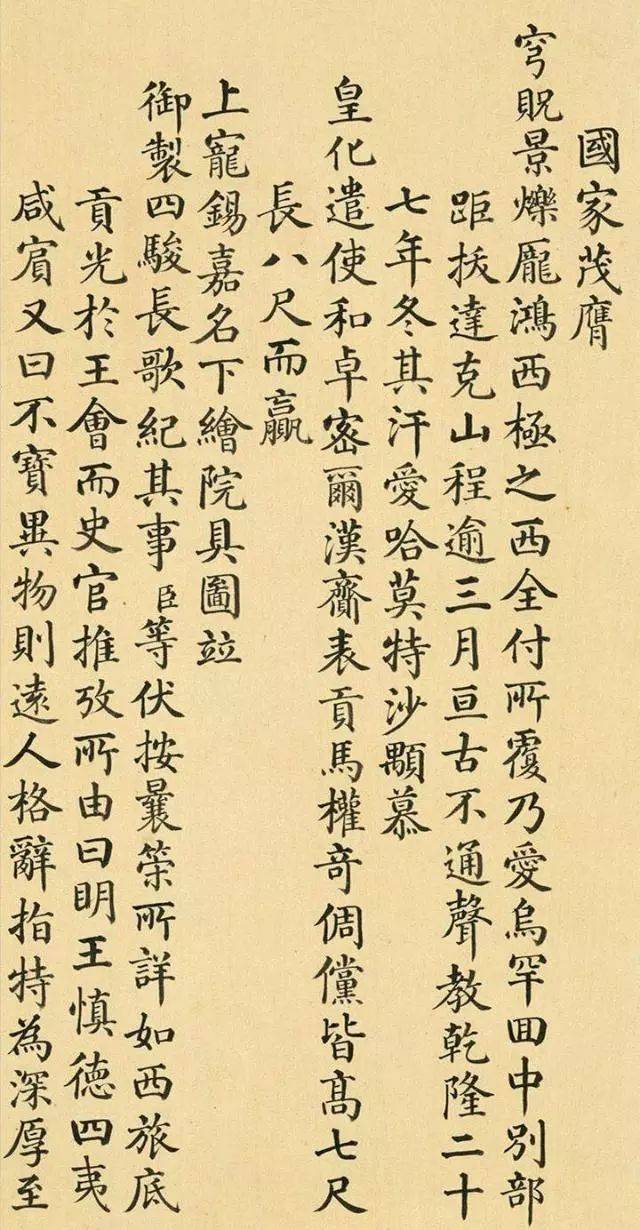 國家茂膺
穹貺景爍厖鴻西極之西全付所覆乃愛烏罕回中別部
距㧞達克山程逾三月亘古不通聲教乾隆二十
七年冬其汗愛哈莫特沙顒慕
皇化遣使和卓密爾漢齎表貢馬權奇倜儻皆高七尺
長八尺而贏
上寵錫嘉名下繪院具圖竝
御製四駿長歌紀其事臣等伏按曩筞所詳如西旅底
貢光於王會而史官推攷所由曰明王慎德四夷
咸賓又曰不寶異物則遠人格辭指特為深厚至